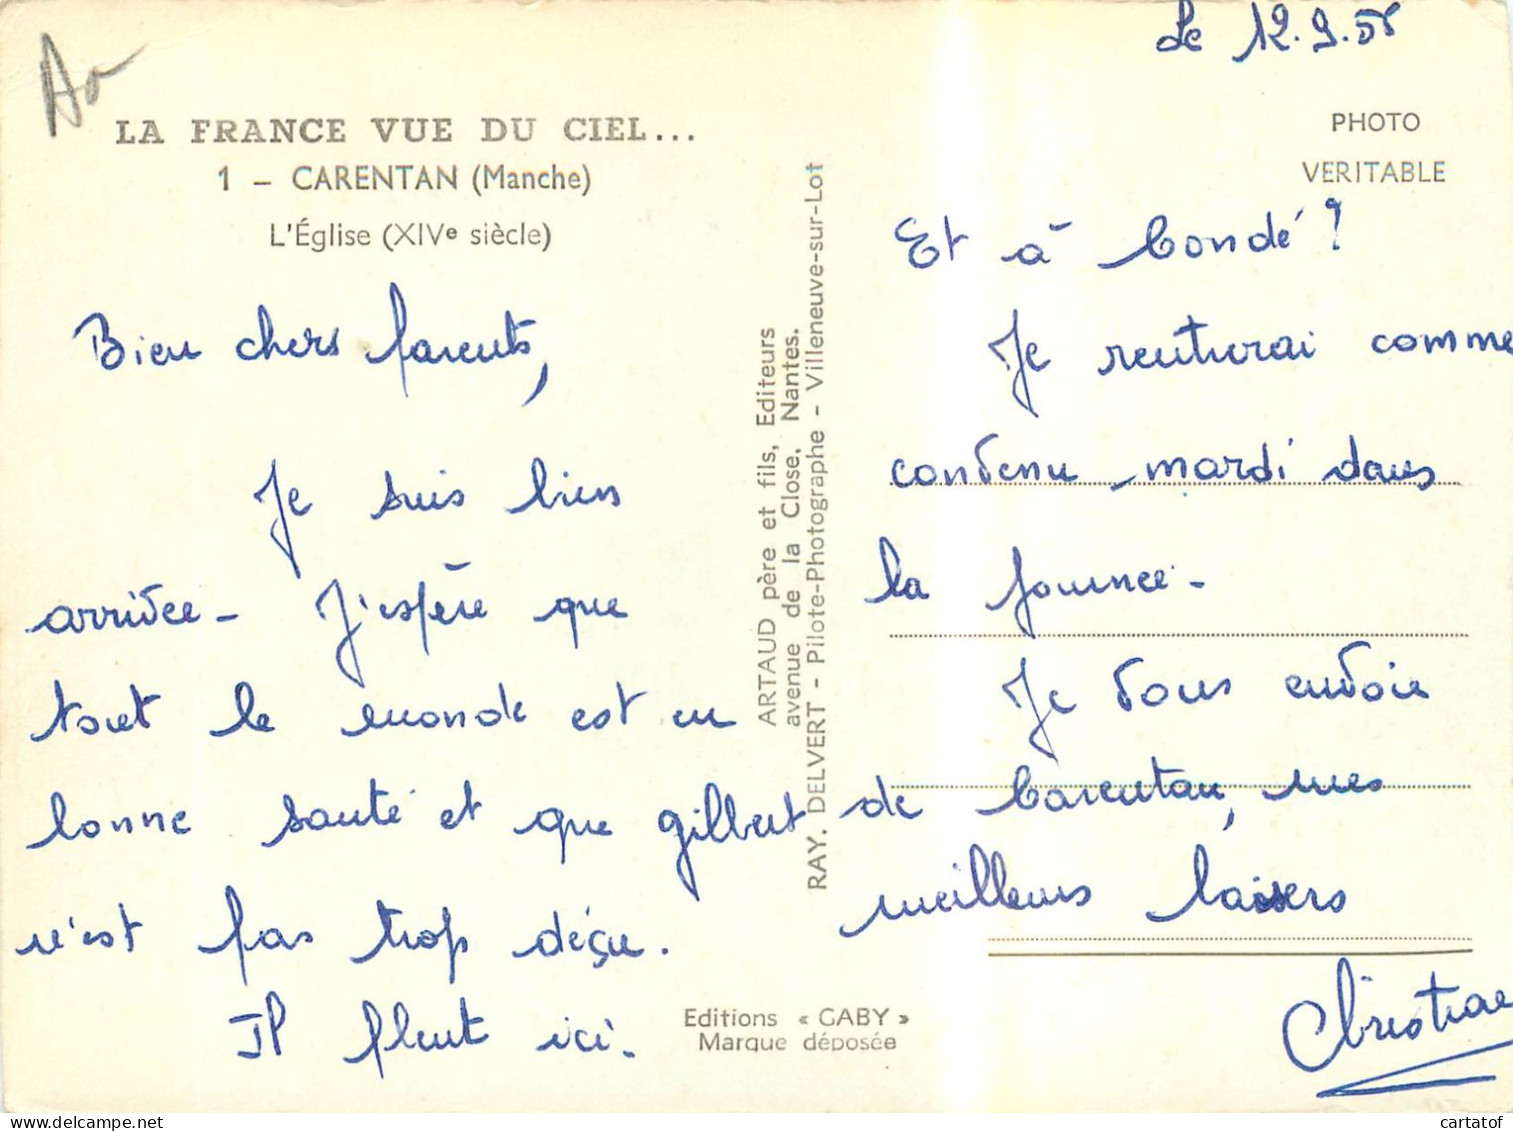 Le 12.9.58
LA FRANCE VUE DU CIEL...
1 - CARENTAN (Manche)
L'Église (XIVe siècle)
Bien chers parents,
Je suis bien
arrivée - J'espère que
tout le monde est en
bonne santé et que gilbert
n'est pas trop déçu.
Il pleut ici.
Editions « GABY »
Marque déposée
ARTAUD père et fils, Editeurs
avenue de la Close, Nantes.
RAY. DELVERT - Pilote-Photographe - Villeneuve-sur-Lot
PHOTO
VERITABLE
Et à Condé ?
Je rentrerai comme
convenu mardi dans
la journée -
Je vous envoie
de Carentan, mes
meilleurs baisers
Christiane
cartatof